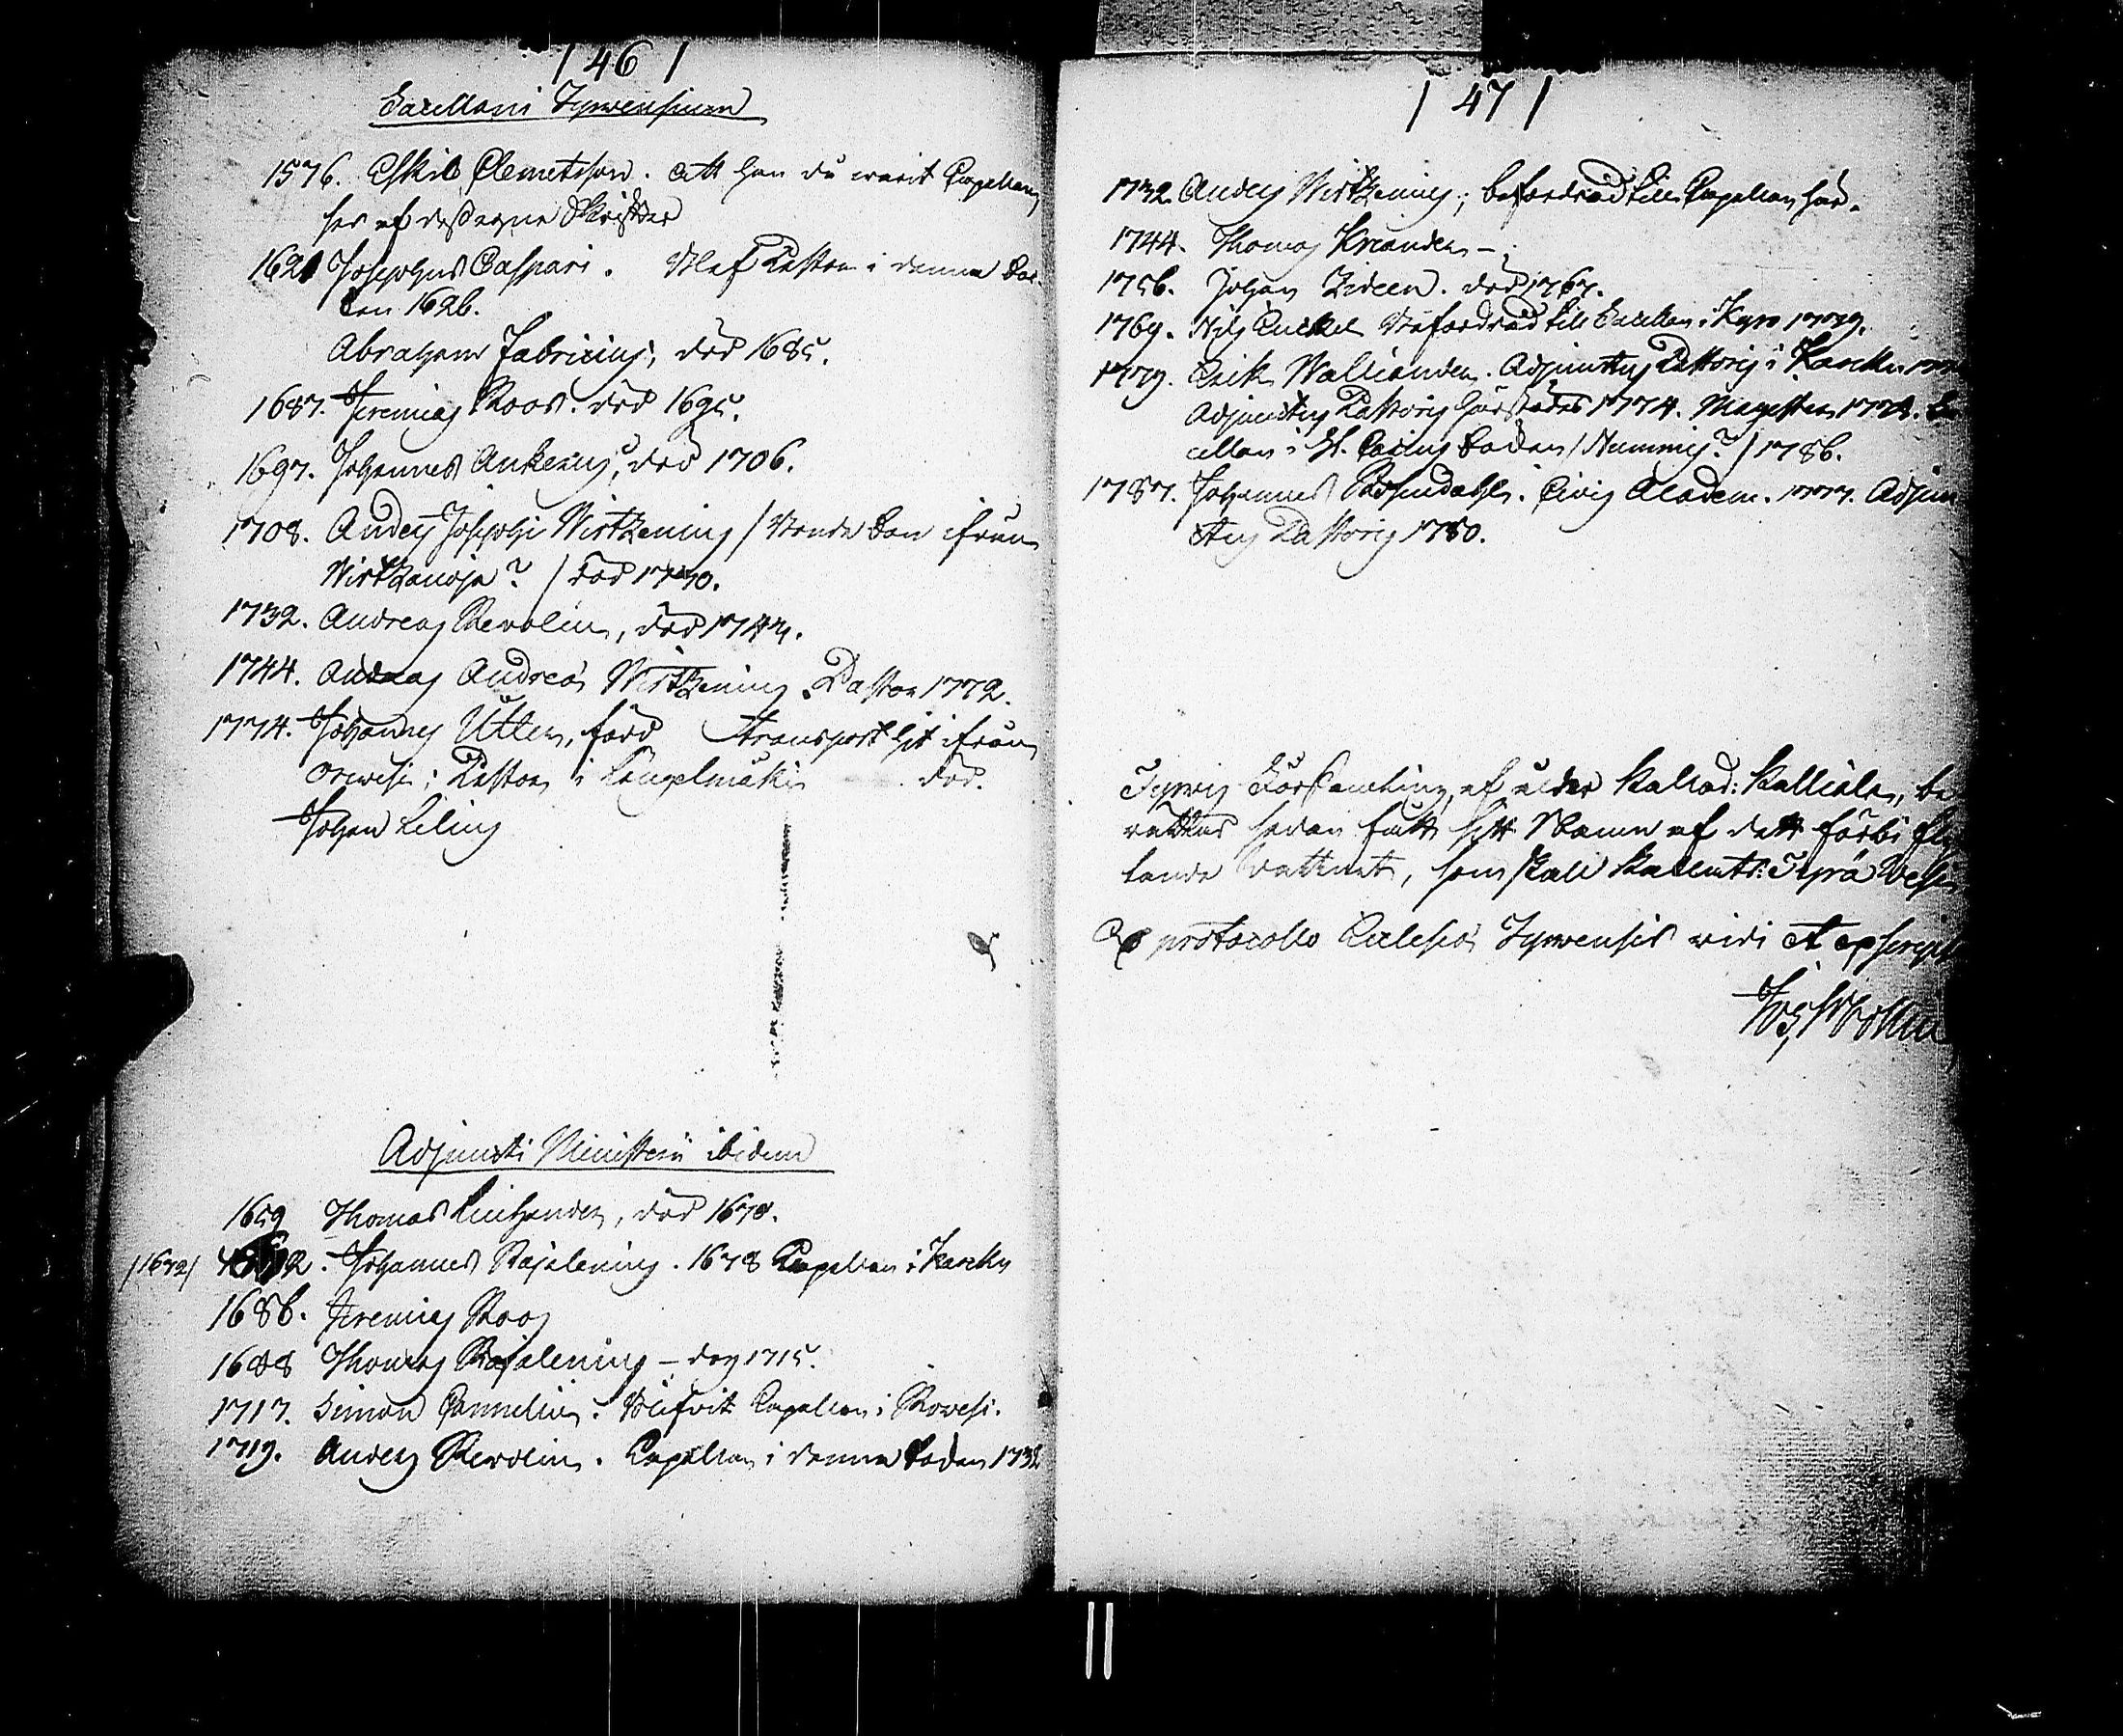 / 46 /
Sacellani Tyrwensium
1576. Eskil Clemetsson. Att han då warit Capellan
ses af dess egne Skrifter
1621 Josephus Caspari. Blef Pastor i denna Soc-
ken 1626.
Abraham Fabricius, död 1685.
1687. Jeremias Roos. död 1695.
1697. Johannes Ankerus, död 1706.
1708. Anders Josephi Wirtzenius / ifrån
Wirtzanoja? / död 1730.
1732. Andreas Revolin, död 1743.
1744. Andreas Andreæ Wirtzenius. Pastor 1772.
1774. Johannes Utter, förd transport hit ifrån
Oriwesi; Pastor i Längelmäki död.
Johan Lilius
Adjuncti Ministerii ibidem
1659 Thomas, död 1678.
/1672/ Johannes Rajalenius. 1678 Capellan i Karcku
1686. Jeremias Roos
1688 Thomas Rajalenius – dog 1715.
1717. Simon Cannelius. Blifvit Capellan i Rowesi.
1719. Anders Revolin. Capellan i denna Socken 1732
/ 47 /
1732. Anders Wirtzenius; befordrad till Capellan här.
1744. Thomas Kreander –
1756. Johan Zideen. död 1767.
1769. Nils Cuckel befordrad till Sacellan i Kyro 1779.
1779. Erik Wallenius. Adjunctus Pastoris i Karcku
Adjunctus Pastoris härstädes 1774. Magister 1778.
cellan i St. Carins Socken / Nummis? / 1786.
1787. Johannes Rosendahl. Civis Academ. 1777. Adjun
ctus Pastoris 1780.
Tyrwis Församling, af ålder kallad: Kalliala, be
rättas sedan fått sitt Namn af dett förbi fly
tande vattnet, som skall kallats: Tyrä Wesi
Ex protocollo Ecclesiæ Tyrwensis vidi et exscripsi